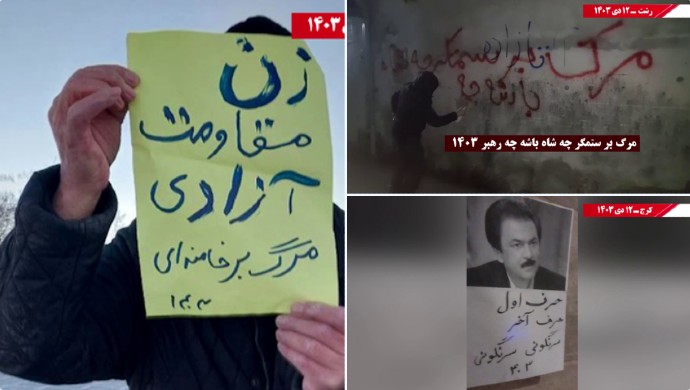 ۱۴۰۳
زن
مقاومت
آزادی
مرگ بر خامنه‌ای
۱۴۰۳
رشت ــ ۱۲ دی ۱۴۰۳
مرگ بر ستمگر چه شاه
باشه چه
مرگ بر ستمگر چه شاه باشه چه رهبر ۱۴۰۳
کرج ــ ۱۲ دی ۱۴۰۳
حرف اول
حرف آخر
سرنگونی سرنگونی
۴۰۳